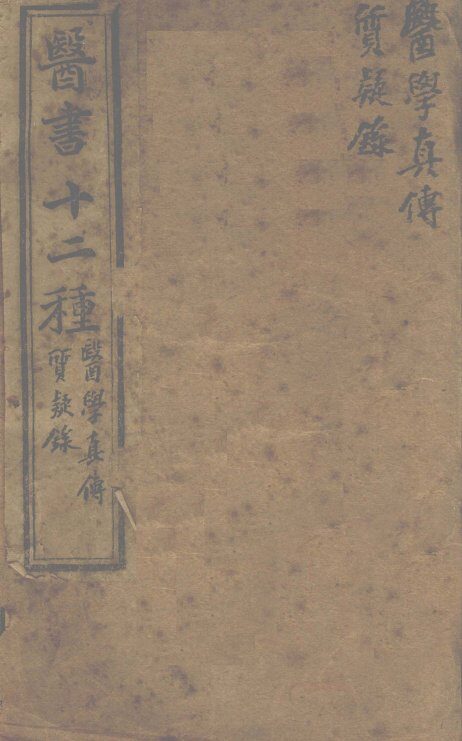 醫學真傳
質疑錄
醫書十二種
醫學真傳
質疑錄